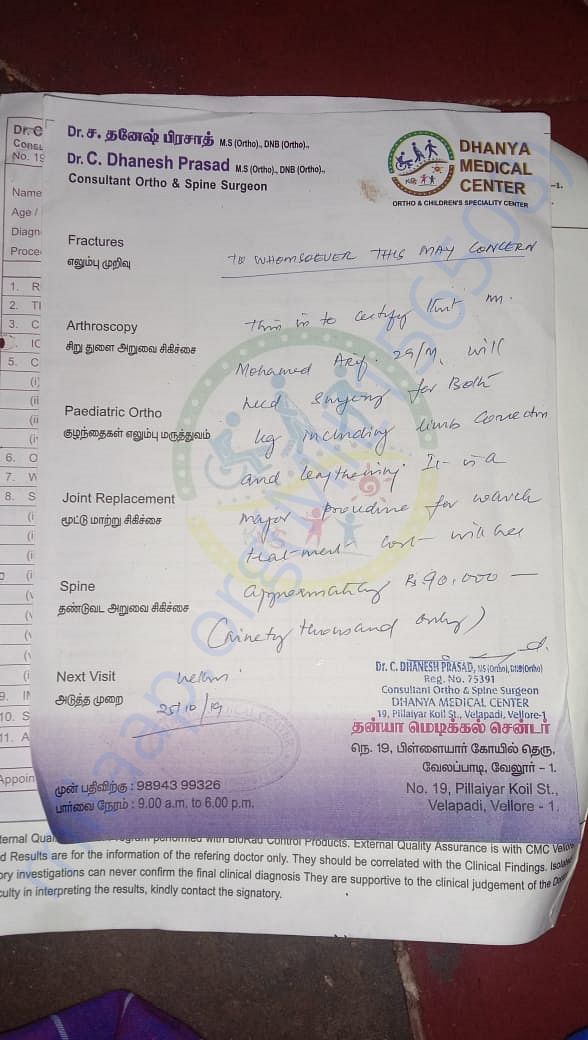 Dr. ச. தனேஷ் பிரசாத் M.S (Ortho)., DNB (Ortho).,
Dr. C. Dhanesh Prasad M.S (Ortho)., DNB (Ortho).,
Consultant Ortho & Spine Surgeon
DHANYA
MEDICAL
CENTER
ORTHO & CHILDREN'S SPECIALITY CENTER
Fractures
எலும்பு முறிவு
TO WHOMSOEVER THIS MAY CONCERN
Arthroscopy
சிறு துளை அறுவை சிகிச்சை
Paediatric Ortho
குழந்தைகள் எலும்பு மருத்துவம்
Joint Replacement
மூட்டு மாற்று சிகிச்சை
Spine
தண்டுவட அறுவை சிகிச்சை
This is to certify that Mr.
Mohamed Arif. 29/M, will
need surgery for Both
leg including limb correction
and lengthening. It is a
major procedure for which
treatment cost will be
approximately Rs 90,000 —
(Ninety thousand only)
Next Visit
அடுத்த முறை
25/10/19
Dr. C. DHANESH PRASAD, MS (Ortho), DNB(Ortho)
Reg. No. 75391
Consultant Ortho & Spine Surgeon
DHANYA MEDICAL CENTER
19, Pillaiyar Koil St., Velapadi, Vellore-1
தன்யா மெடிக்கல் சென்டர்
நெ. 19, பிள்ளையார் கோயில் தெரு,
வேலப்பாடி, வேலூர் – 1.
முன் பதிவிற்கு : 98943 99326
பார்வை நேரம் : 9.00 a.m. to 6.00 p.m.
No. 19, Pillaiyar Koil St.,
Velapadi, Vellore - 1.
Dr. C
Consu
No. 19
Name
Age /
Diagn
Proce
1. R
2. TI
3. C
IC
5. C
6. O
7. W
8. S
9. IN
10. S
11. A
Appoin
ternal Qual performed with BioRad Control Products. External Quality Assurance is with CMC Vellore
d Results are for the information of the refering doctor only. They should be correlated with the Clinical Findings. Isolated
ory investigations can never confirm the final clinical diagnosis They are supportive to the clinical judgement of the Doctor
culty in interpreting the results, kindly contact the signatory.